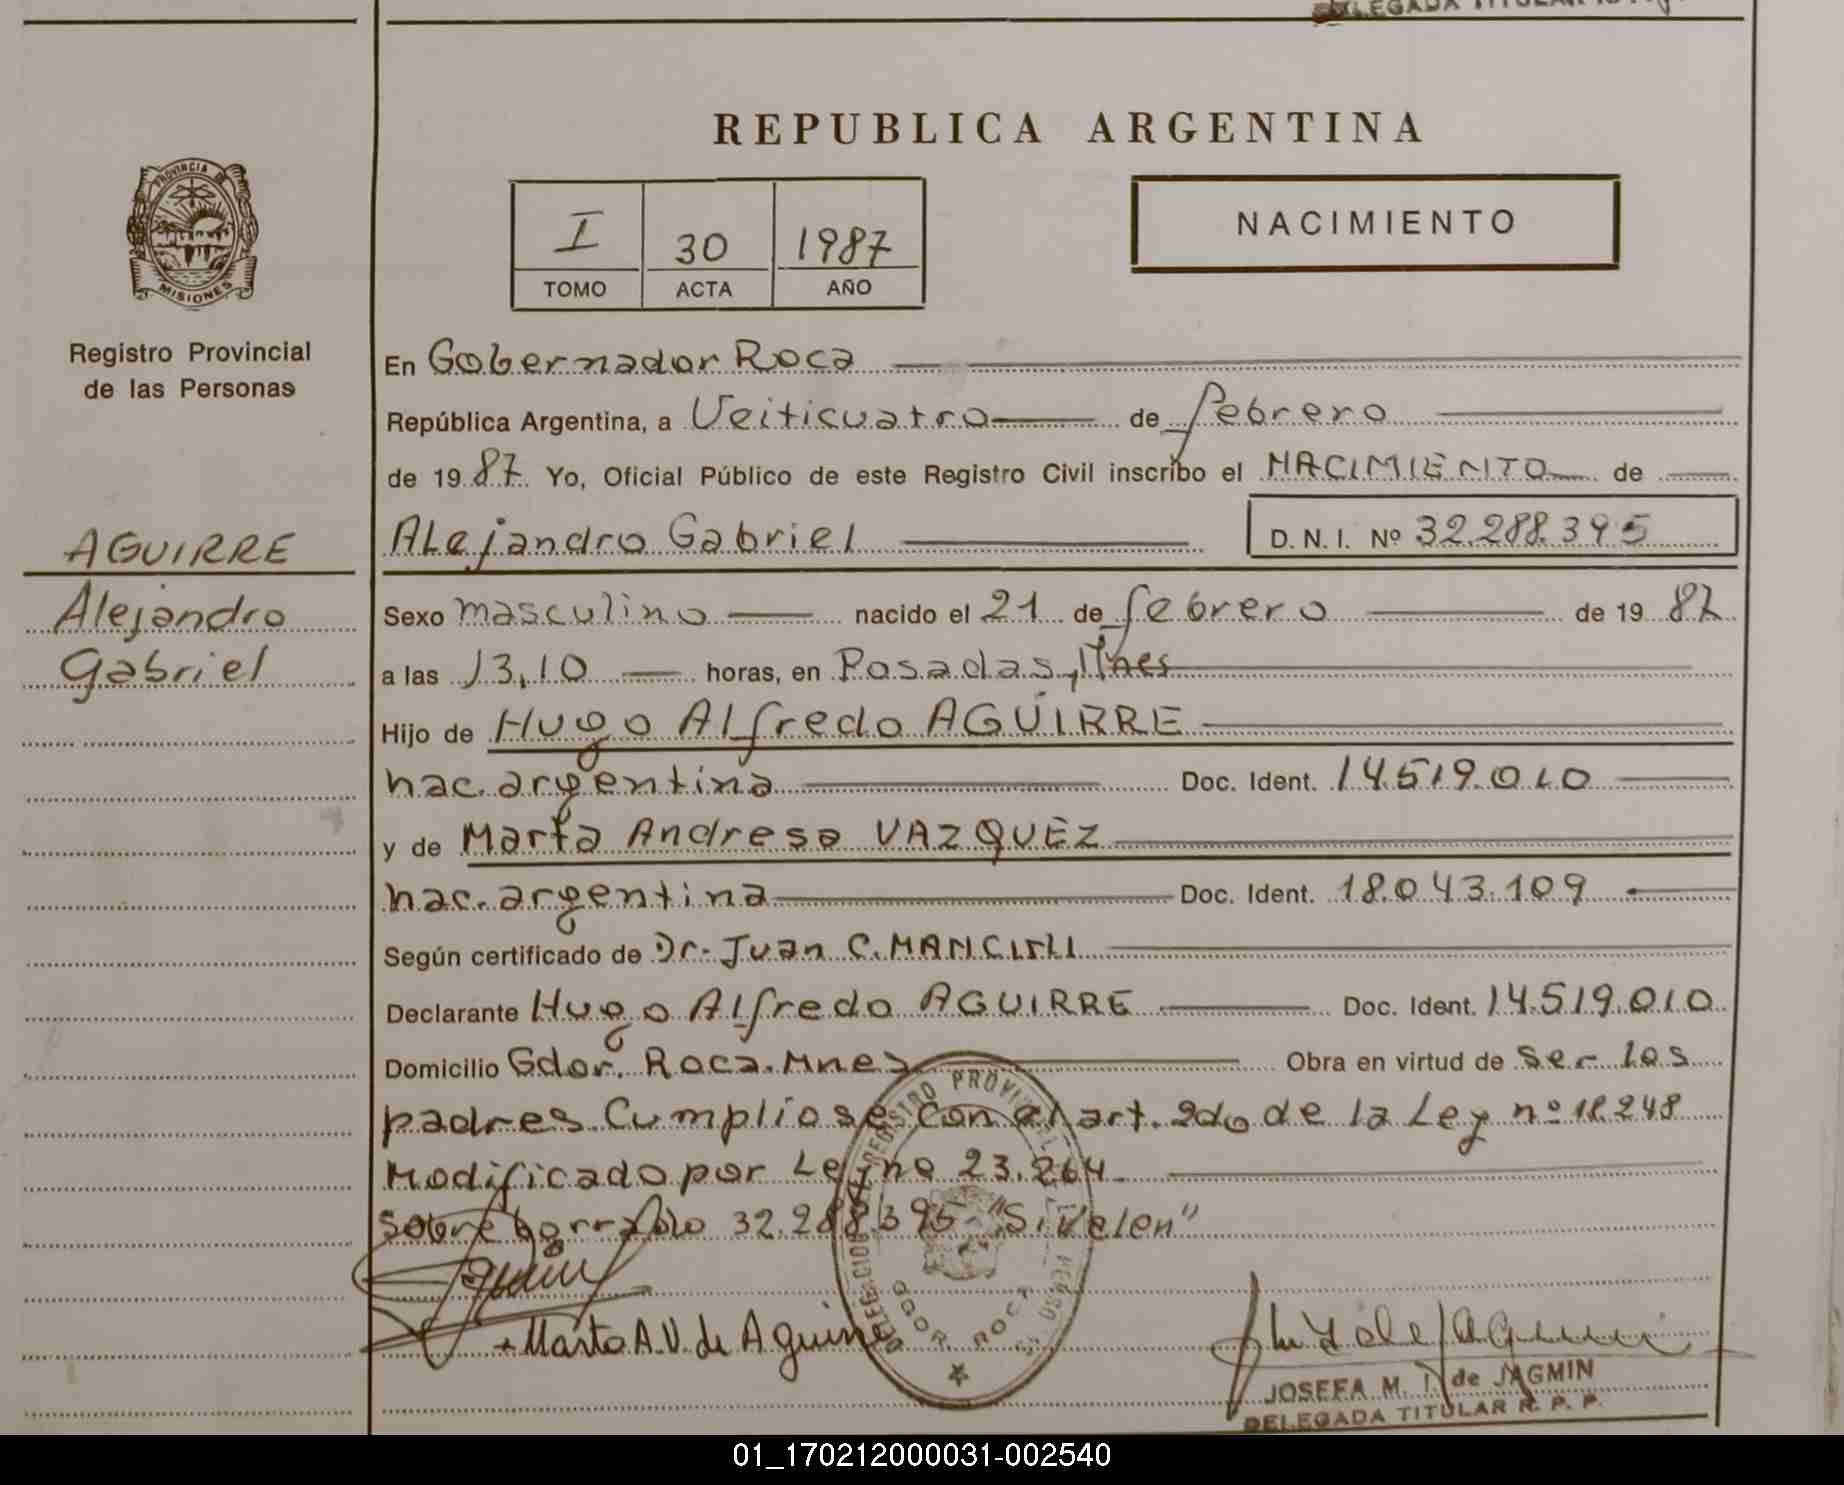 DELEGADA TITULAR
REPUBLICA ARGENTINA
PROVINCIA DE
MISIONES
I 30 1987
TOMO ACTA AÑO
NACIMIENTO
Registro Provincial
de las Personas
En Gobernador Roca
República Argentina, a Veiticuatro de febrero
de 1987 Yo, Oficial Público de este Registro Civil inscribo el NACIMIENTO de
AGUIRRE
Alejandro Gabriel D. N. I. Nº 32.288.395
Alejandro
Gabriel
Sexo masculino nacido el 21 de febrero de 1987
a las 13,10 horas, en Posadas, Mnes
Hijo de Hugo Alfredo AGUIRRE
nac. argentina Doc. Ident. 14.519.010
y de Marta Andresa VAZQUEZ
nac. argentina Doc. Ident. 18.043.109
Según certificado de Dr. Juan C.
Declarante Hugo Alfredo AGUIRRE Doc. Ident. 14.519.010
Domicilio Gdor. Roca. Mnes Obra en virtud de ser los
padres. Cumpliose con el art. 2do de la Ley nº 18.248
Modificado por Ley nº 23.264
sobre borrado 32.288.395 "Si Valen"
Marta A. V. de Aguirre
REGISTRO PROVINCIAL
GDOR. ROCA
JOSEFA M. T. de JAGMIN
DELEGADA TITULAR R. P. P.
01_170212000031-002540